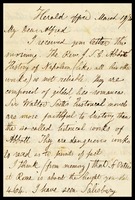 Herald Office March 19
My Dear Alfred
I received your letter this
morning. The Rev. J. S. C. Abbott
History of Napoleon (like all his other
works) is not reliable. They are
composed of gilded lies romances
Sir Walter Scotts historical novels
are more faithful to history than
the so-called historical works of
Abbott. They are dangerous works
to read as to points of fact.
I think from memory that
at Rome is about the height you
464. I have seen Salisbury